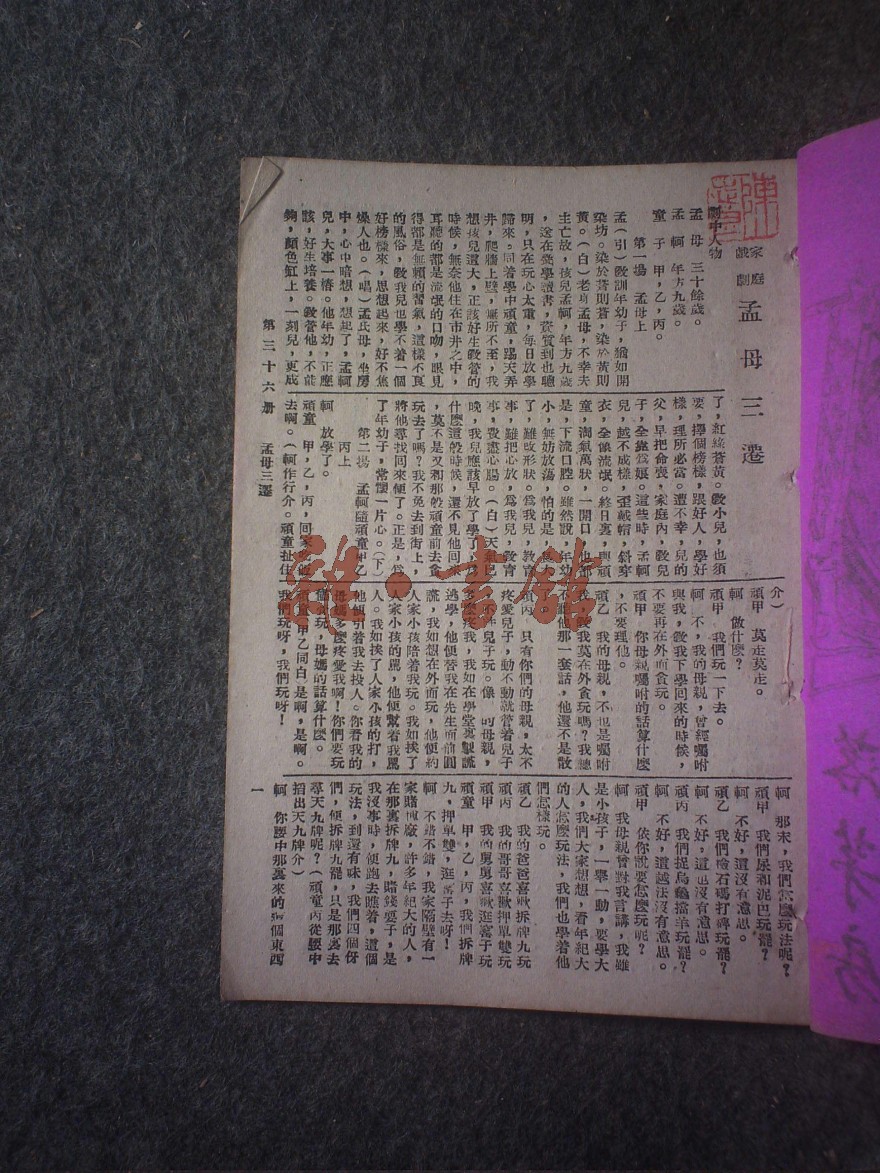 家庭戲劇 孟母三遷
劇中人物
孟母 三十餘歲。
孟軻 年方九歲。
童子 甲,乙,丙。
第一場 孟母上
孟(引)敎訓年幼子,猶如開
染坊。染於蒼則蒼,染於黃則
黃。(白)老身孟母,不幸夫
主亡故,孩兒孟軻,年方九歲
,送在受學讀書,資質到也聰
明,只在玩心太重,每日放學
歸來。同着學中頑童,踢天弄
井,爬牆上壁,無所不至,我
想孩兒還大,正該好生敎管的
時候,無奈他住在市井之中,
耳聽的都是流氓的口吻,眼見
得都是無賴的習氣,這樣不良
的風俗,敎我兒也學不着一個
好榜樣來,思想起來,好不焦
燥人也。(唱)孟氏母,坐房
中,心中暗想,想起了,孟軻
兒,大事一樁。他年幼,正應
該,好生培養。敎管他,不能
夠,顏色缸上,一刻兒,更成
了,紅綠蒼黃。敎小兒,也須
要,擇個榜樣,跟好人,學好
樣,理所必當。遭不幸,兒的
父,早把命喪,家庭內,敎兒
子,全靠爲娘。這些時,孟軻
兒,越不成樣,歪戴帽,斜穿
衣,全像流氓。終日裏,與頑
童,淘氣萬狀,一開口,他都
是,下流口腔。雖然說,年幼
小,無妨放蕩,怕的是,
了,難改形狀。爲我兒,敎育
事,難把心放,爲我兒,敎育
事,費盡心腸。(白)天氣已
晚,我兒應該早放了學了,爲
什麼這般時候,還不見他回來
,莫不是又和那般頑童前去貪
玩去了嗎?我不免去到街上,
將他尋找回來便了。正是,爲
了年幼子,常懷一片心。(下)
第二場 孟軻隨頑童甲乙
丙上
軻 放學了。
頑童 甲,乙,丙,回家
去啊。(軻作行介。頑童扯住
介)
頑甲 莫走莫走。
軻 做什麼?
頑甲 我們玩一下去。
軻 不,我的母親,曾經囑咐
與我,敎我下學回來的時候,
不要再在外面貪玩。
頑甲 你母親囑咐的話算什麼
,不要理他。
頑乙 我的母親,不也是囑咐
我,敎我莫在外貪玩嗎?我總
不聽他那一套話,他還不是散

頑丙 只有你們的母親,太不
疼愛兒子,動不動就管着兒子
,不許兒子玩。像我的母親,
多麼疼我,我如在學堂裏製謊
逃學,他便替我在先生面前圓
謊,我如想在外面玩,他便約
人家小孩陪着我玩。我如挨了
人家小孩的罵,他便幫着我罵
人。我如挨了人家小孩的打,
他便引着我去投人。你看我的
母媽多麼疼愛我啊!你們要玩
儘必玩,母媽的話算什麼。
頑童(甲乙同白)是啊,是啊。
我們玩呀,我們玩呀!
軻 那末,我們怎麽玩法呢?
頑甲 我們尿和泥巴玩罷?
軻 不好,這沒有意思。
頑乙 我們檢石碼打磚玩罷?
軻 不好,這也沒有意思。
頑丙 我們捉烏龜擋羊玩罷?
軻 不好,這越法沒有意思。
頑甲 依你說要怎麽玩呢?
軻 我母親曾對我言講,我雖
是小孩子,一舉一動,要學大
人,我們大家想想,看年紀大
的人怎麽玩法,我們也學着他
們怎樣玩。
頑乙 我的爸爸喜歡拆牌九玩
頑丙 我的哥哥喜歡押單雙玩
頑甲 我的舅舅喜歡逛窰子玩
頑童 甲,乙,丙,我們拆牌
九,押單雙,逛窰子去呀!
軻 不錯不錯,我家隔壁有一
家賭博廠,許多年紀大的人,
在那裏拆牌九,賭錢耍子,是
我沒事時,便跑去瞧着,這個
玩法,到還有味,我們四個伢
們,便拆牌九罷,只是那裏去
尋天九牌呢?(頑童丙從腰中
掏出天九牌介)
軻 你腰中那裏來的這個東西
第三十六册 孟母三遷 一
雜·書館